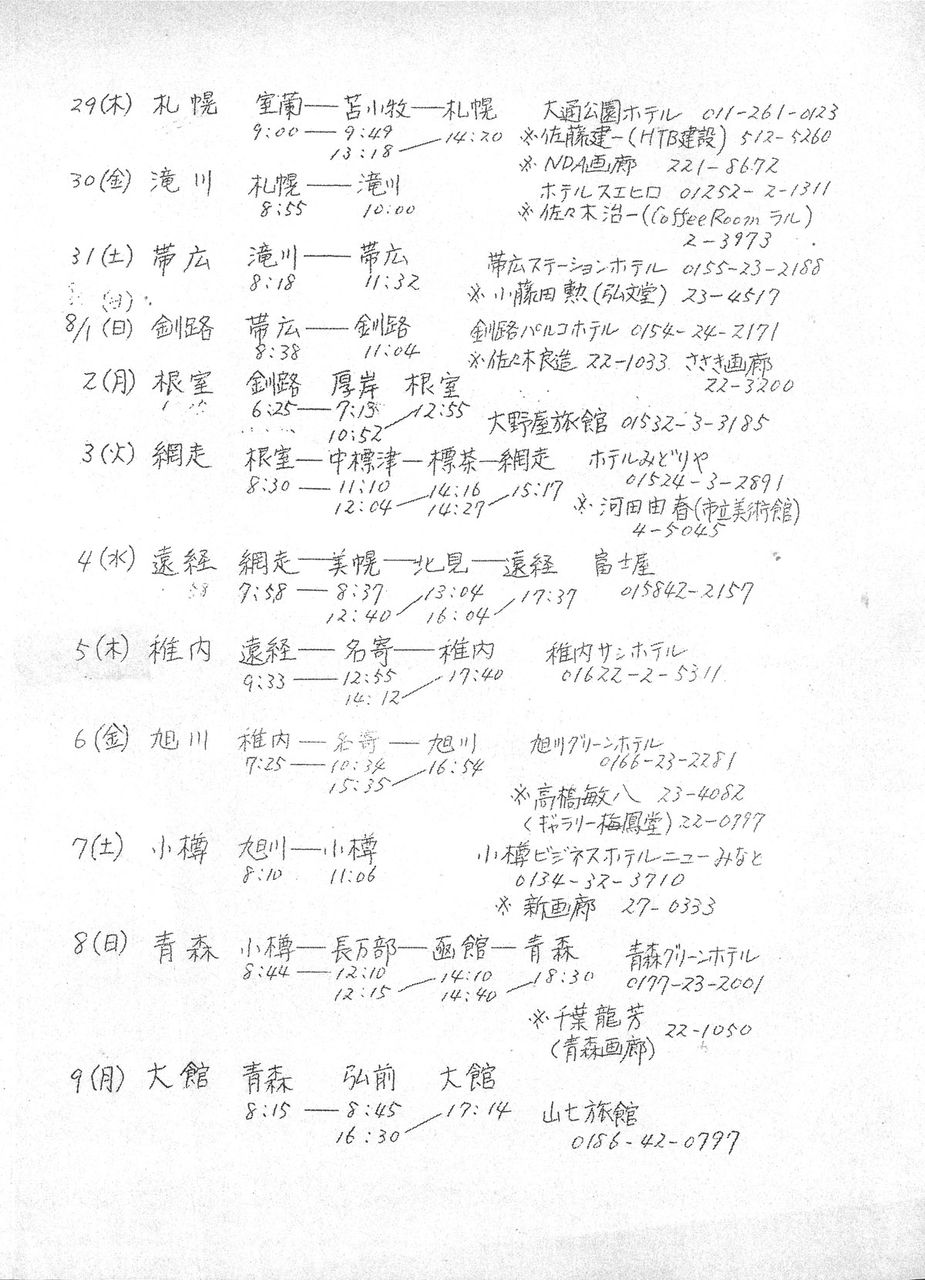 29(木) 札幌 室蘭—苫小牧—札幌 大通公園ホテル 011-261-0123
9:00—9:49 14:20 ※佐藤建一(HTB建設) 512-5260
13:18 ※NDA画廊 221-8672
30(金) 滝川 札幌—滝川 ホテルスエヒロ 01252-2-1311
8:55 10:00 ※佐々木治一(Coffee Room ラル)
2-3973
31(土) 帯広 滝川—帯広 帯広ステーションホテル 0155-23-2188
8:18 11:32 ※小藤田勲(弘文堂) 23-4517
8/1(日) 釧路 帯広—釧路 釧路パルコホテル 0154-24-2171
8:38 11:04 ※佐々木良造 22-1033 ささき画廊
22-3200
2(月) 根室 釧路 厚岸 根室
6:25—7:13 12:55
10:52 大野屋旅館 01532-3-3185
3(火) 網走 根室—中標津—標茶—網走 ホテルみどりや
8:30—11:10 14:16 15:17 01524-3-2891
12:04 14:27 ※河田由春(市立美術館)
4-5045
4(水) 遠経 網走—美幌—北見—遠経 富士屋
7:58—8:37 13:04 17:37 015842-2157
12:40 16:04
5(木) 稚内 遠経—名寄—稚内 稚内サンホテル
9:33—12:55 17:40 01622-2-5311
14:12
6(金) 旭川 稚内—名寄—旭川 旭川グリーンホテル
7:25—10:34 16:54 0166-23-2281
15:35
※高橋敏八 23-4082
(ギャラリー梅鳳堂) 22-0797
7(土) 小樽 旭川—小樽 小樽ビジネスホテルニューみなと
8:10 11:06 0134-32-3710
※新画廊 27-0333
8(日) 青森 小樽—長万部—函館—青森 青森グリーンホテル
8:44—12:10 14:10 18:30 0177-23-2001
12:15 14:40
※千葉龍芳 22-1050
(青森画廊)
9(月) 大館 青森 弘前 大館
8:15—8:45 17:14 山七旅館
16:30 0186-42-0797